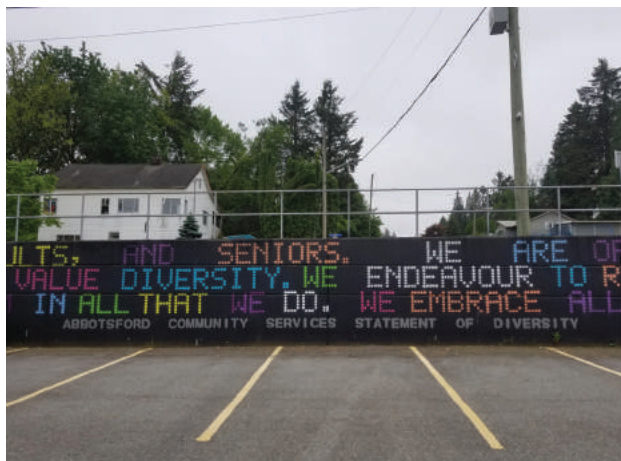 ULTS, AND SENIORS. WE ARE OF
VALUE DIVERSITY. WE ENDEAVOUR TO R
IN ALL THAT WE DO. WE EMBRACE ALL
ABBOTSFORD COMMUNITY SERVICES STATEMENT OF DIVERSITY